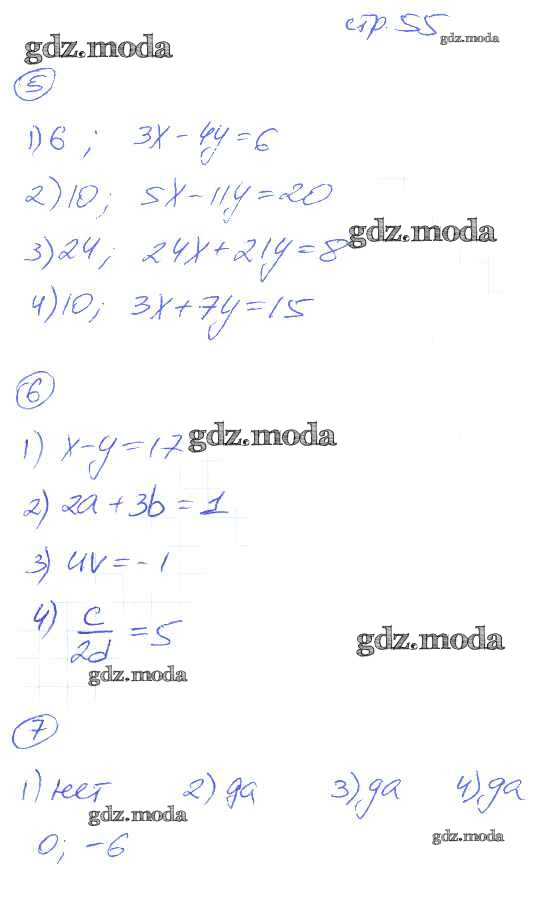 стр. 55
gdz.moda
gdz.moda
5
1) 6 ; 3x - 4y = 6
2) 10; 5x - 11y = 20
gdz.moda
3) 24; 24x + 21y = 8
4) 10; 3x + 7y = 15
6
1) x - y = 17
gdz.moda
2) 2a + 3b = 1
3) uv = -1
4) c/2d = 5
gdz.moda
gdz.moda
7
1) нет 2) да 3) да 4) да
gdz.moda
0; -6
gdz.moda